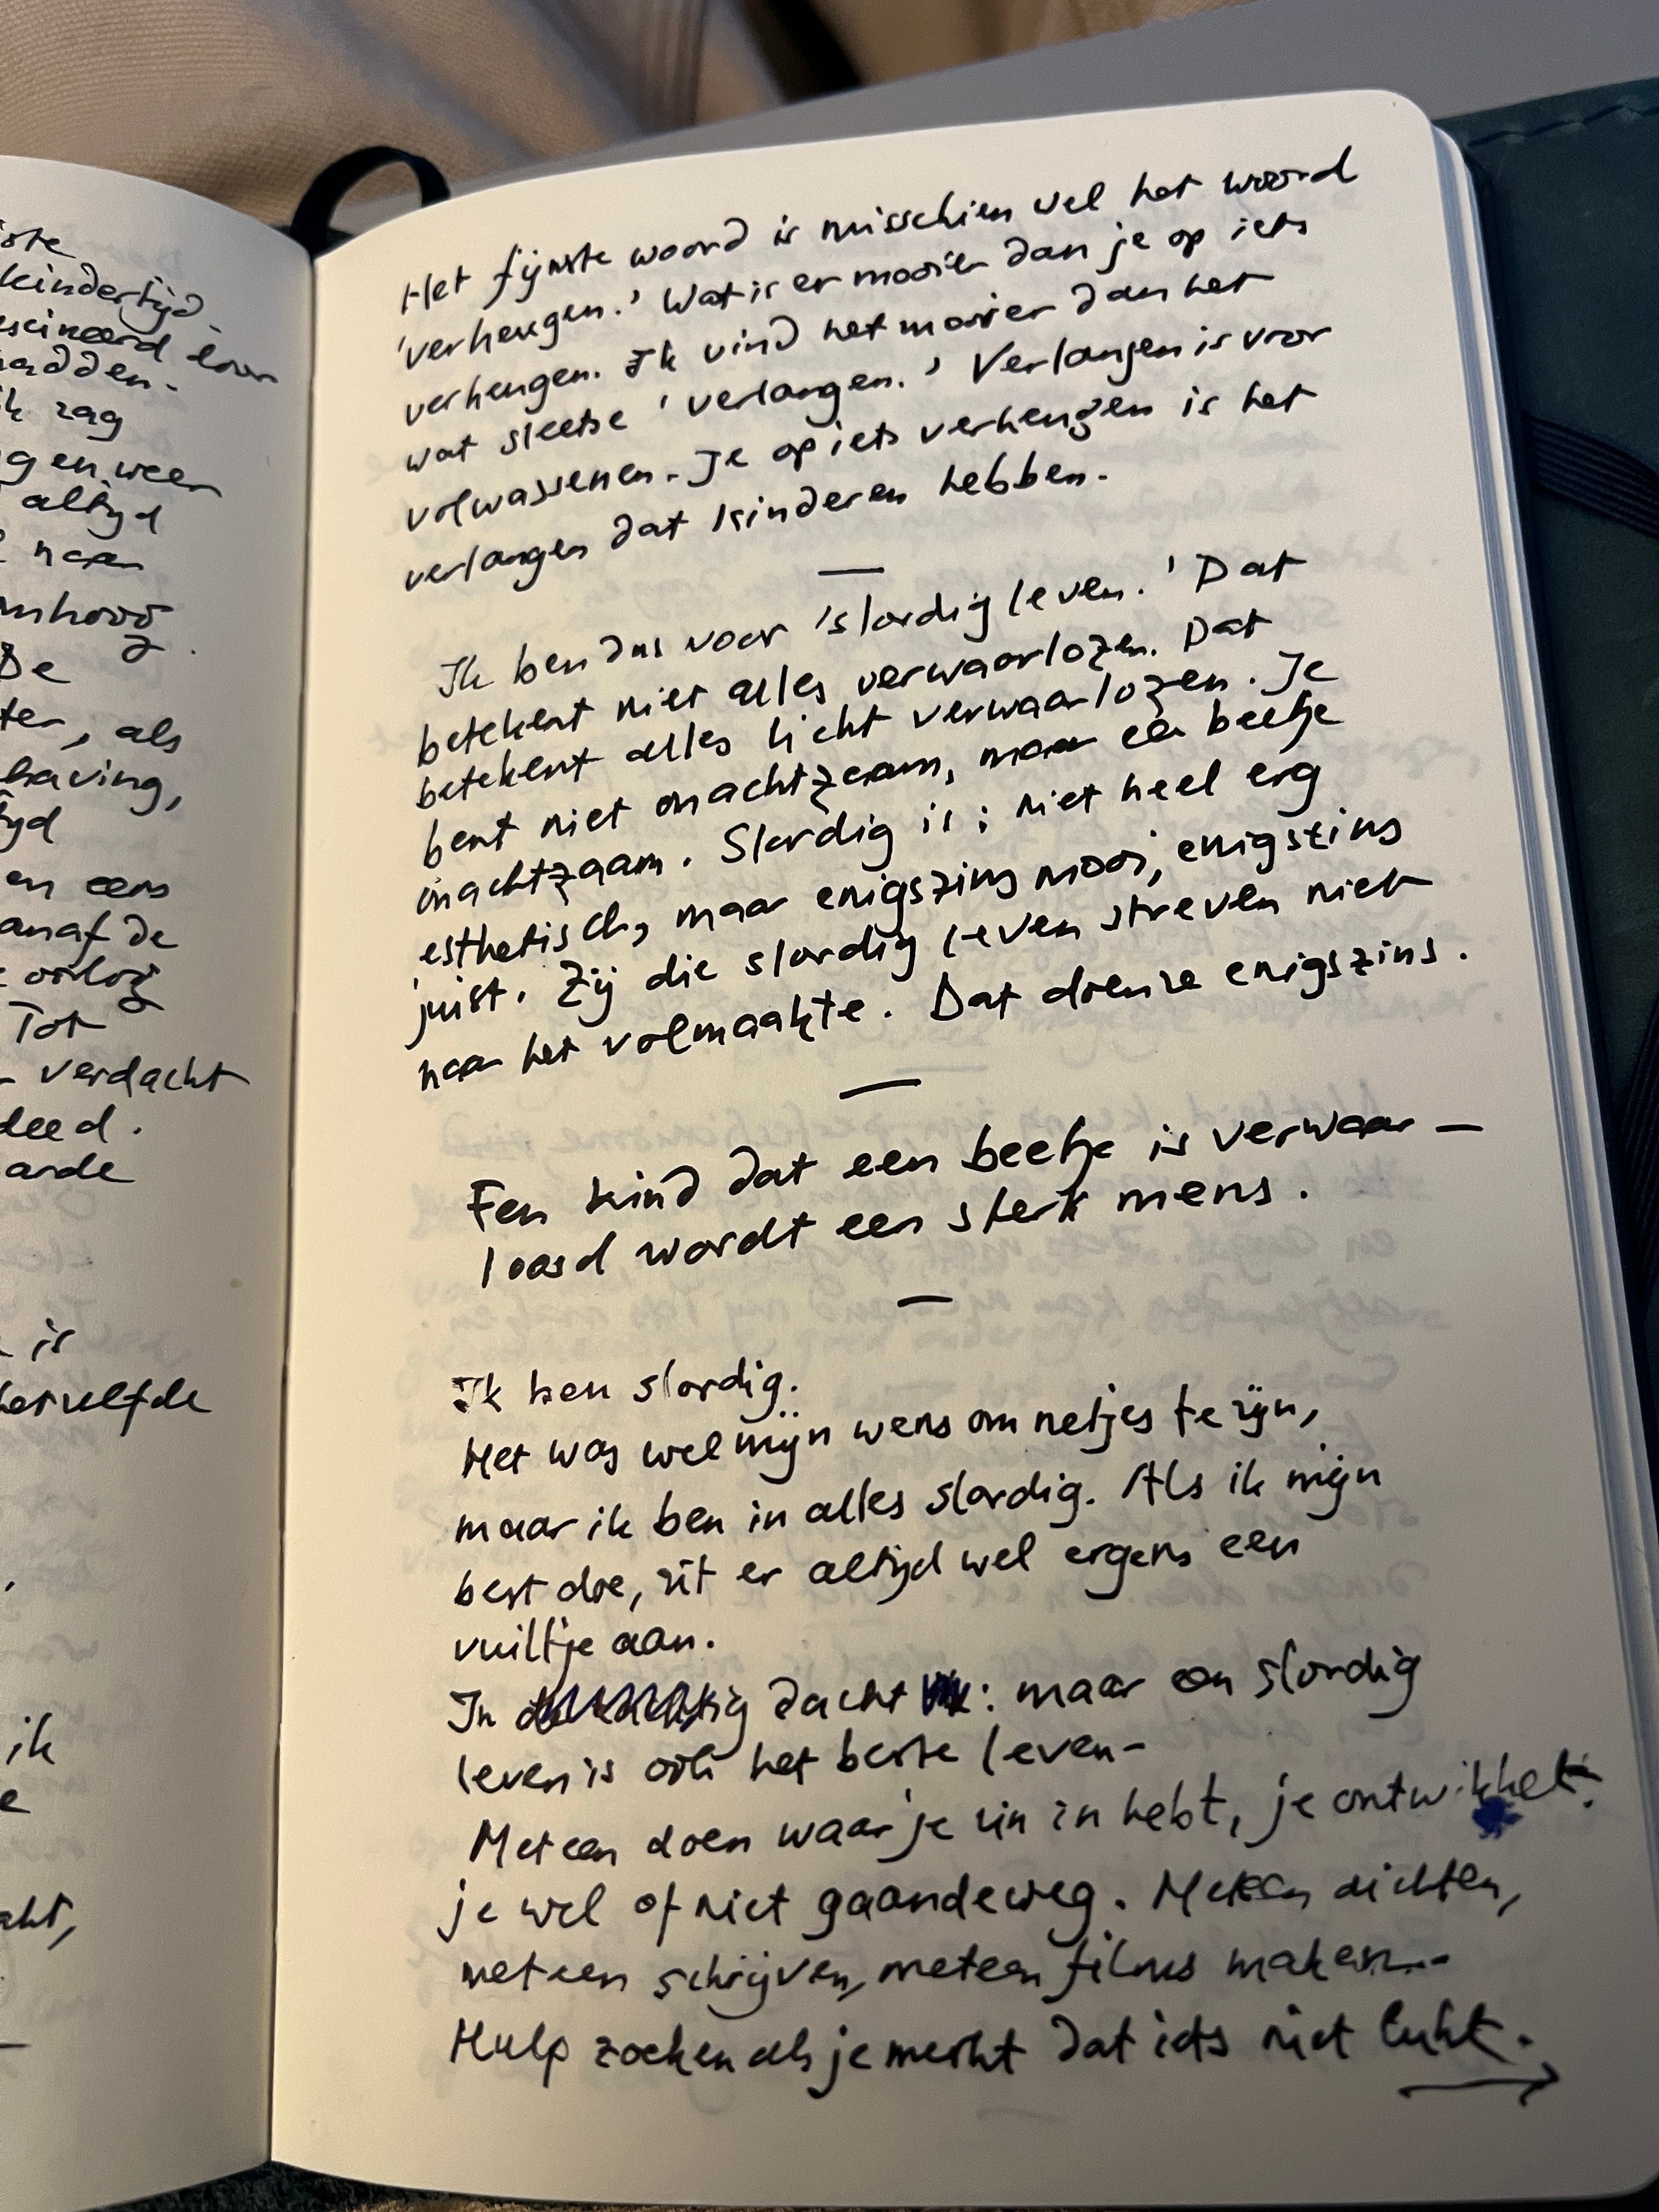 kindertijd
door
hadden.
ik zag
en weer
altijd
naar
De
als
having,
en eens
vanaf de
oorlog
Tot
verdacht
deed.
arde
is
hetzelfde
ik
Het fijnste woord is misschien wel het woord
'verheugen.' Wat is er mooier dan je op iets
verheugen. Ik vind het mooier dan het
wat sleetse 'verlangen.' Verlangen is voor
volwassenen. Je op iets verheugen is het
verlangen dat kinderen hebben.
—
Ik ben dus voor 'slordig leven.' Dat
betekent niet alles verwaarlozen. Dat
betekent alles licht verwaarlozen. Je
bent niet onachtzaam, maar een beetje
onachtzaam. Slordig is: niet heel erg
esthetisch, maar enigszins mooi, enigszins
juist. Zij die slordig leven streven niet
naar het volmaakte. Dat doen ze enigszins.
—
Een kind dat een beetje is verwaar-
loosd wordt een sterk mens.
—
Ik ben slordig.
Het was wel mijn wens om netjes te zijn,
maar ik ben in alles slordig. Als ik mijn
best doe, zit er altijd wel ergens een
vuiltje aan.
In dacht : maar een slordig
leven is ook het beste leven-
Meteen doen waar je zin in hebt, je ontwikkelt
je wel of niet gaandeweg. Meteen dichten,
meteen schrijven, meteen films maken...
Hulp zoeken als je merkt dat iets niet lukt.
→